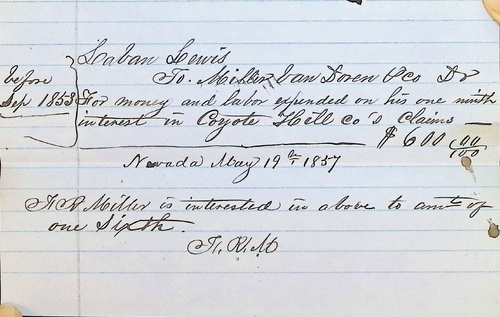 Laban Lewis
To. Miller, Van Doren & Co Dr
before
Sep 1853
For money and labor expended on his one ninth
interest in Coyote Hill co's Claims —
$ 600 00/100
Nevada May 19th 1857
F R Miller is interested in above to amt of
one Sixth.
F. R. M